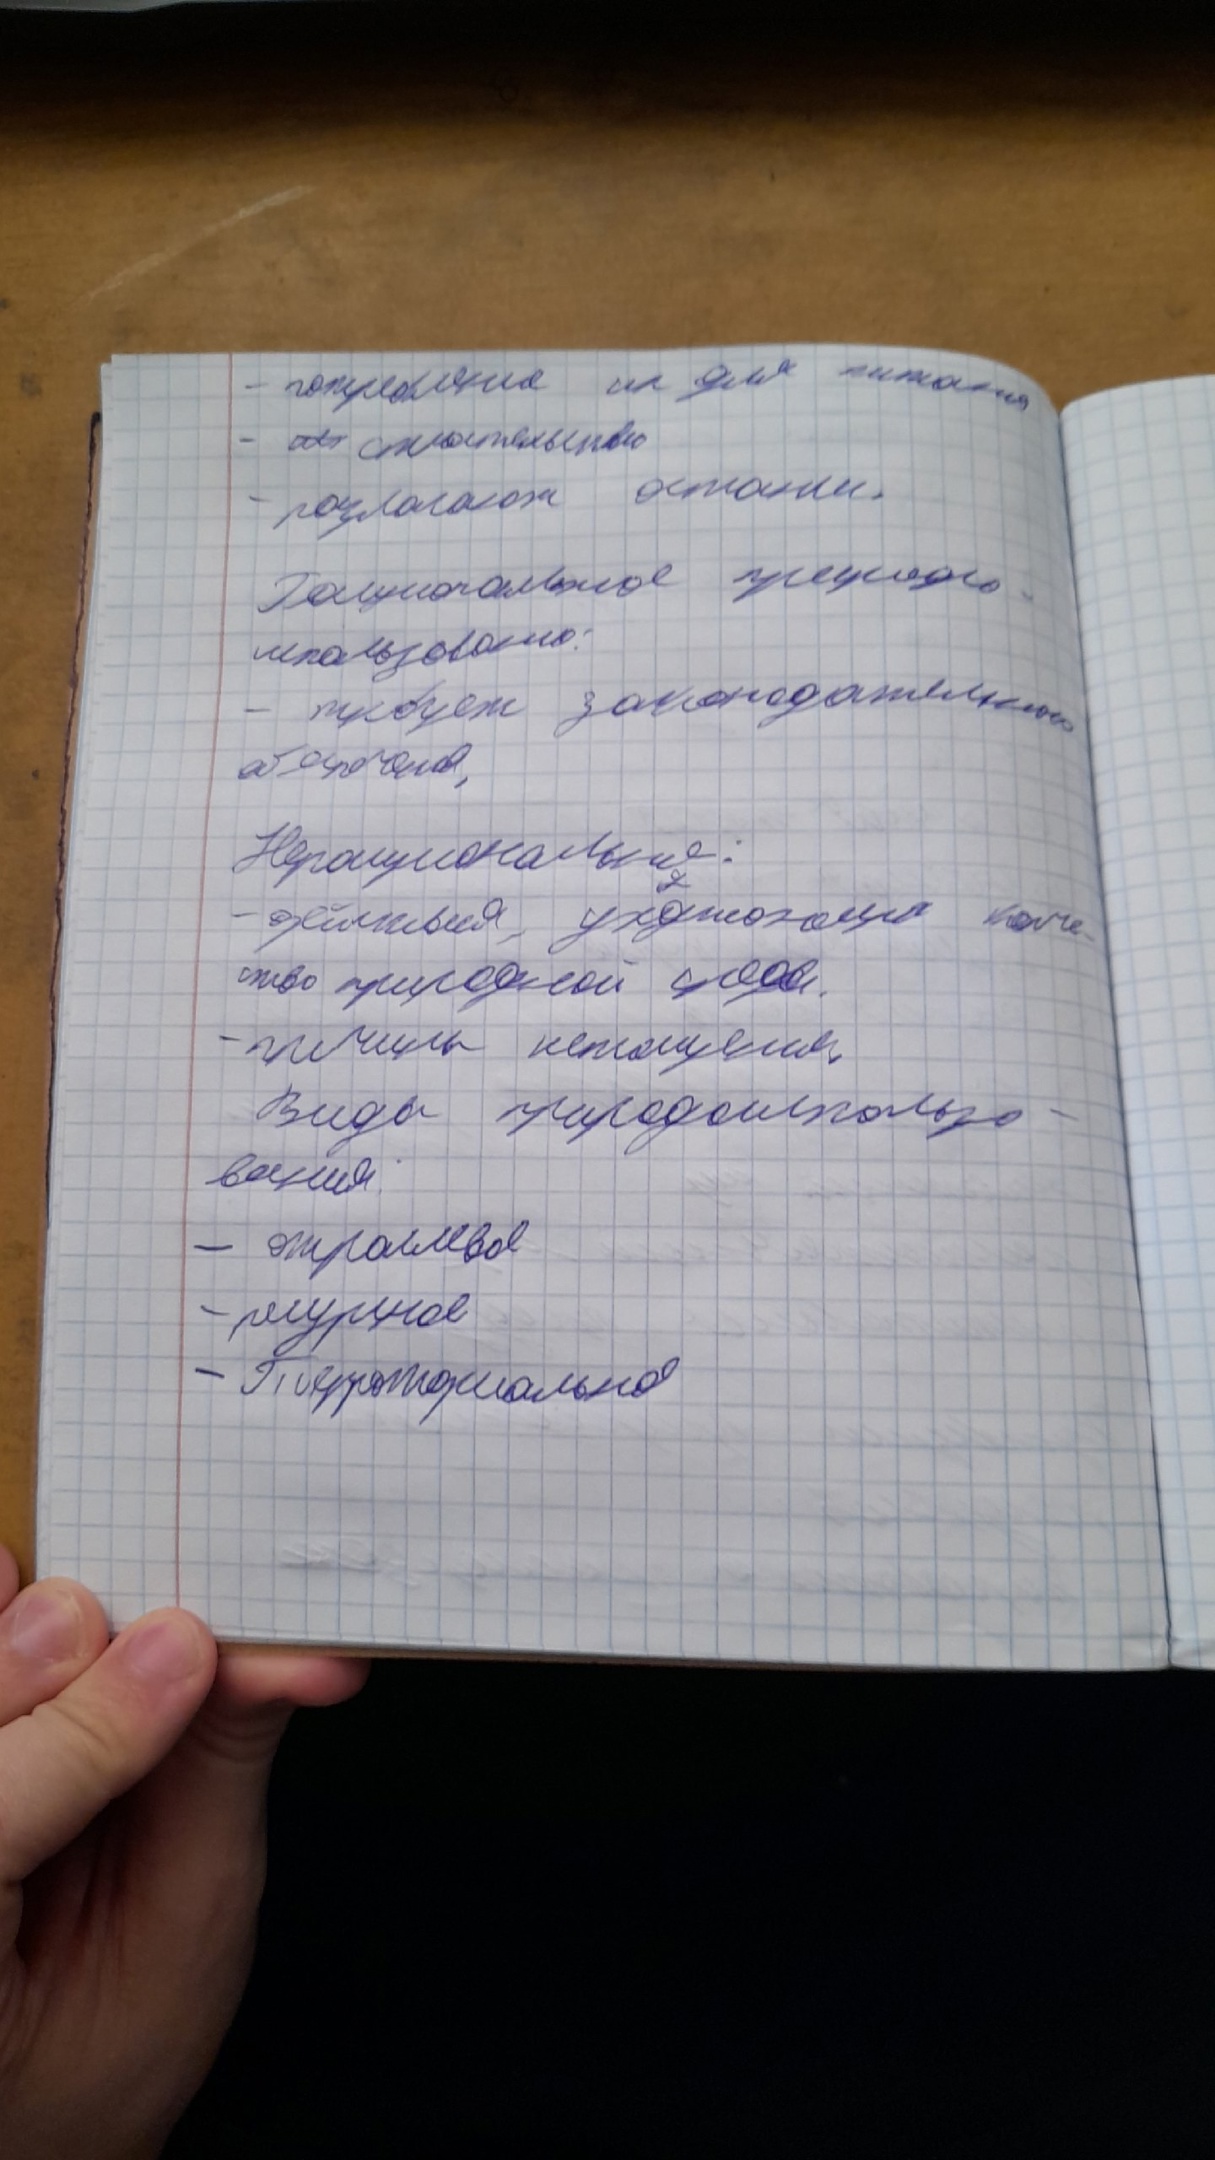 - потребление их для питания
- строительство
- разлагают останки.
Рациональное природо-
использование:
- требует законодательного
обеспечения,
Нерациональное:
- деятельная, ухудшающая каче-
ство природной среды.
- причины истощения.
Виды природоиспользо-
вания:
- отраслевое
- ресурсное
- Территориальное